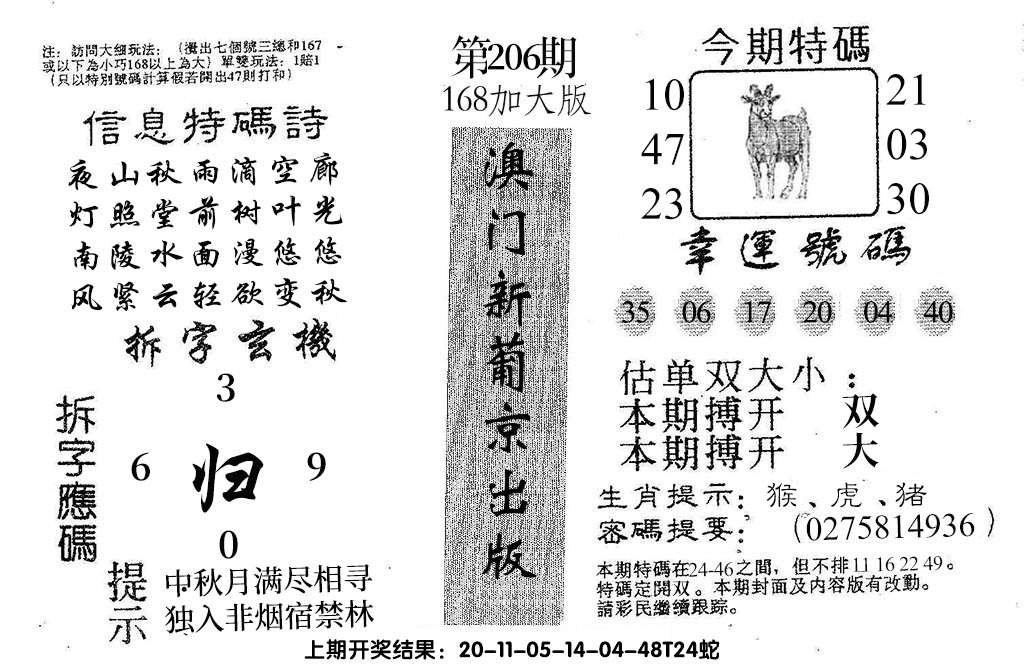 注：訪問大細玩法：（攪出七個號三總和167
或以下為小巧168以上為大）單雙玩法：1賠1
（只以特別號碼計算假若開出47則打和）
信息特碼詩
夜山秋雨滴空廊
灯照堂前树叶光
南陵水面漫悠悠
风紧云轻欲变秋
拆字玄機
拆字應碼
3
6 归 9
0
提示
中秋月满尽相寻
独入非烟宿禁林
第206期
168加大版
澳门新葡京出版
今期特碼
10 21
47 03
23 30
幸運號碼
35 06 17 20 04 40
估单双大小：
本期搏开 双
本期搏开 大
生肖提示：猴、虎、猪
密碼提要：（0275814936）
本期特碼在24-46之間，但不排11 16 22 49。
特碼定開双。本期封面及内容版有改動。
請彩民繼續跟踪。
上期开奖结果：20-11-05-14-04-48T24蛇